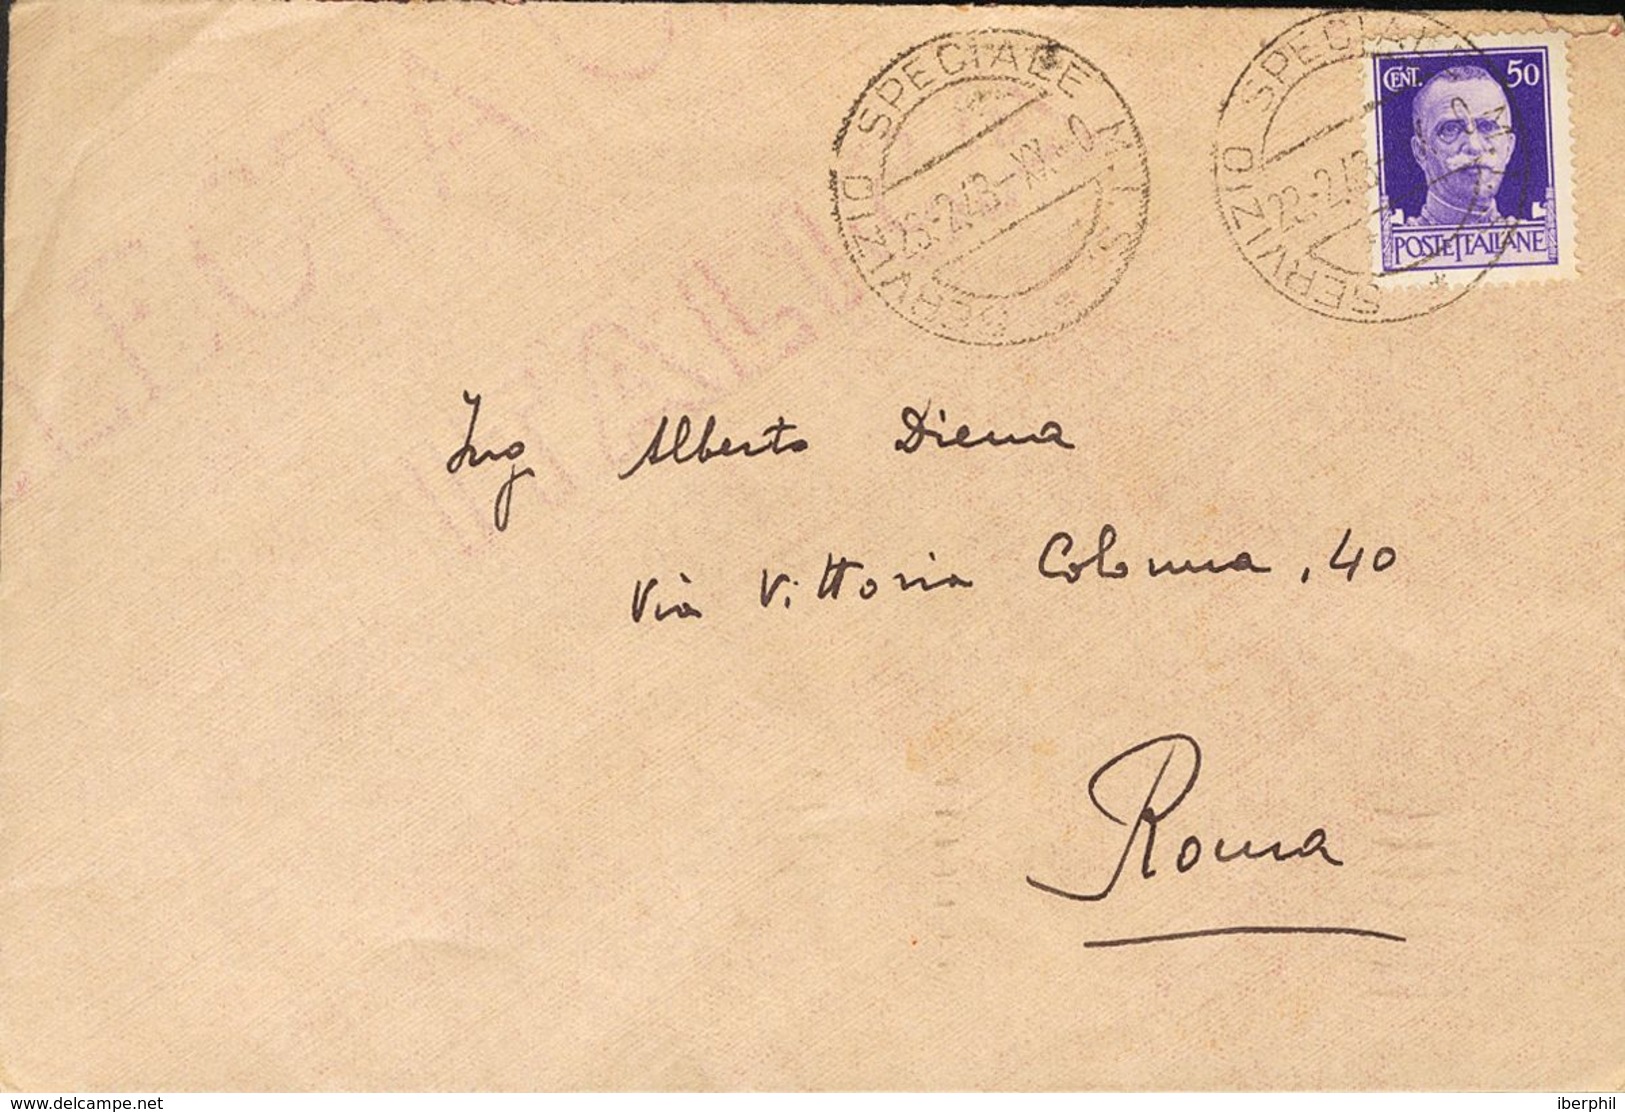 SERVIZIO SPECIALE M.V.S.
23-2.43-XX-0
SERVIZIO SPECIALE
22-2.43
CENT. 50
POSTE ITALIANE
ITALIA
Ing Alberto Diena
Via Vittoria Colonna, 40
Roma
delcampe.net
iberphil